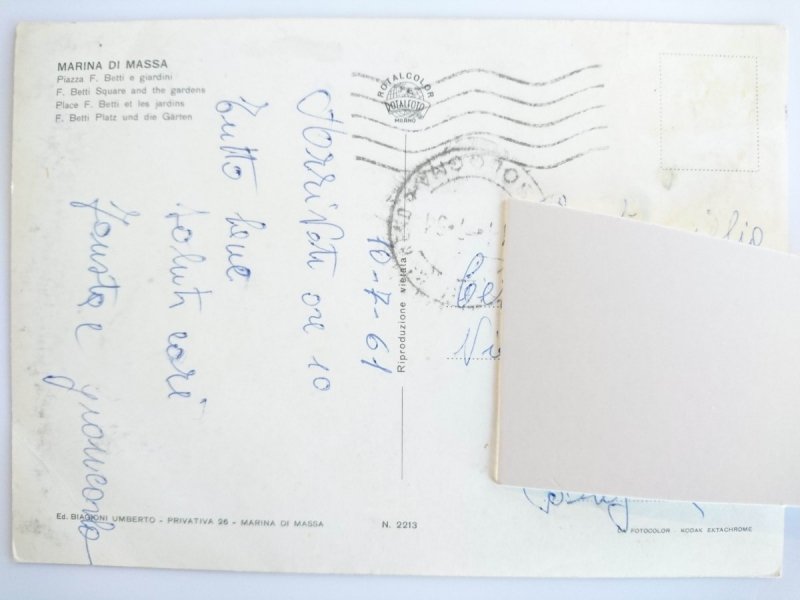 MARINA DI MASSA
Piazza F. Betti e giardini
F. Betti Square and the gardens
Place F. Betti et les jardins
F. Betti Platz und die Gärten
ROTALCOLOR
ROTALFOTO
MILANO
10-7-61
Arrivati ore 10
Tutto bene
saluti cari
Fausta e giancarlo
Riproduzione vietata
Ed. BIAGIONI UMBERTO - PRIVATIVA 26 - MARINA DI MASSA
N. 2213
DA FOTOCOLOR - KODAK EKTACHROME